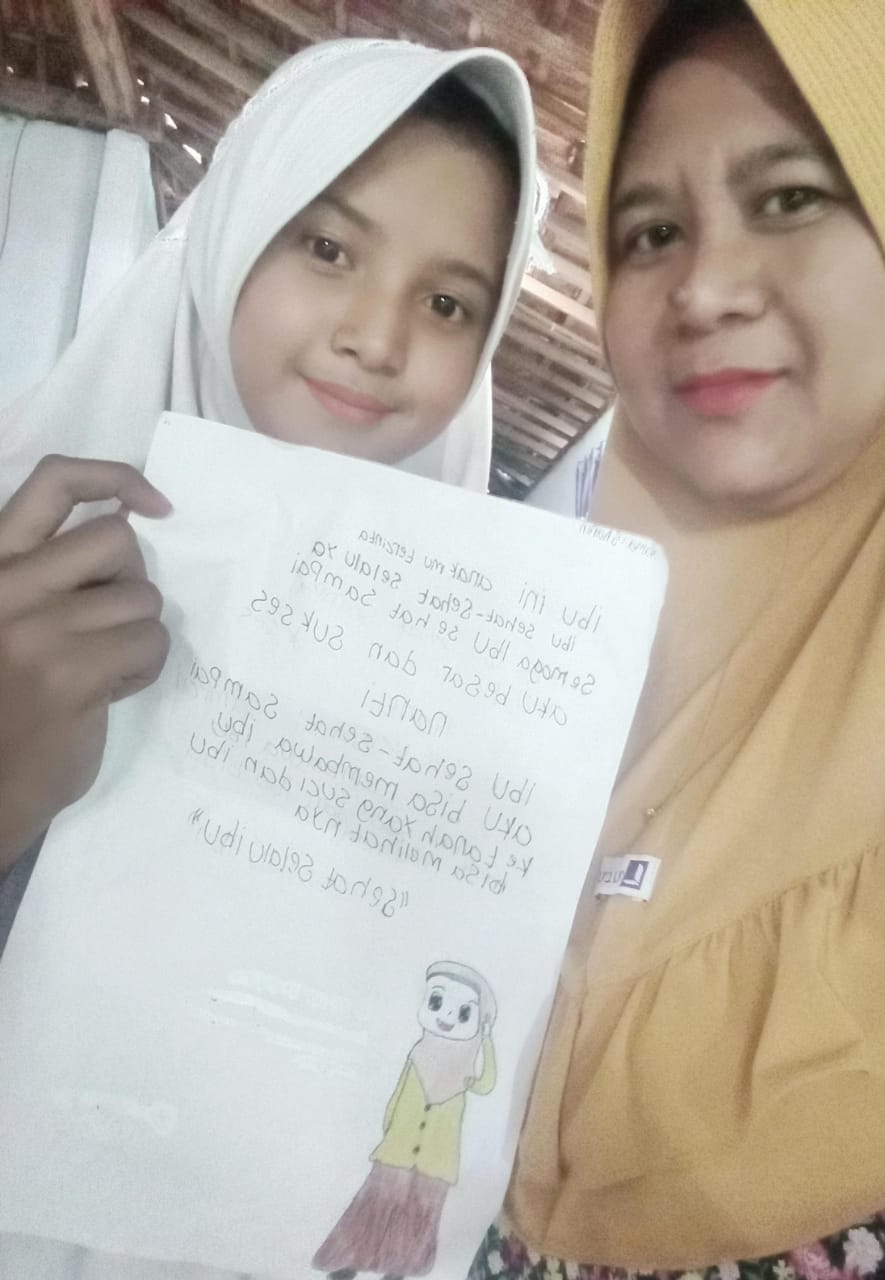 ibu ini anak mu tercinta
ibu sehat-sehat selalu ya
semoga ibu sehat sampai
aku besar dan sukses
nanti
ibu sehat-sehat sampai
aku bisa membawa ibu
ke tanah yang suci dan ibu
bisa melihat nya
"sehat selalu ibu"